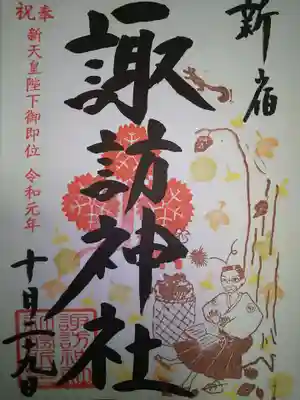 新宿
諏訪神社
奉祝
新天皇陛下御即位 令和元年
十月二十九日